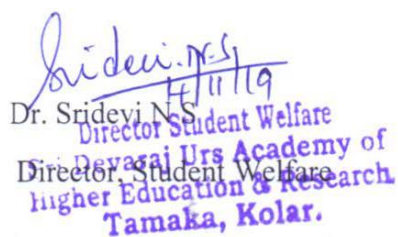 Sridevi.N.S
4/11/19
Dr. Sridevi N.S
Director Student Welfare
Director, Student Welfare
Sri Devaraj Urs Academy of
Higher Education & Research
Tamaka, Kolar.